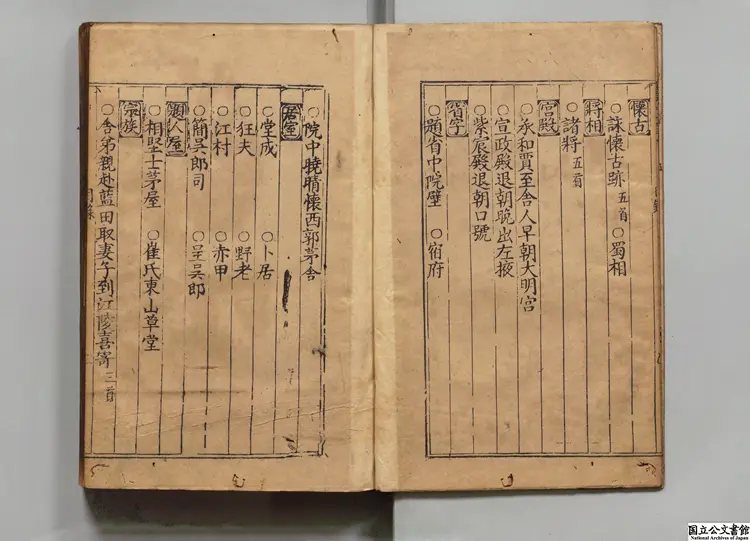 懷古
○詠懷古跡 五首 ○蜀相
將相
○諸將 五首
宮殿
○奉和賈至舍人早朝大明宮
○宣政殿退朝晚出左掖
○紫宸殿退朝口號
省宇
○題省中院壁 ○宿府
○院中曉晴懷西郭茅舍
居室
○堂成 ○卜居
○狂夫 ○野老
○江村 ○赤甲
○簡吳郎司 ○呈吳郎
題人屋
○柏學士茅屋 ○崔氏東山草堂
宗族
○舍弟觀赴藍田取妻子到江陵喜寄 三首
国立公文書館
National Archives of Japan